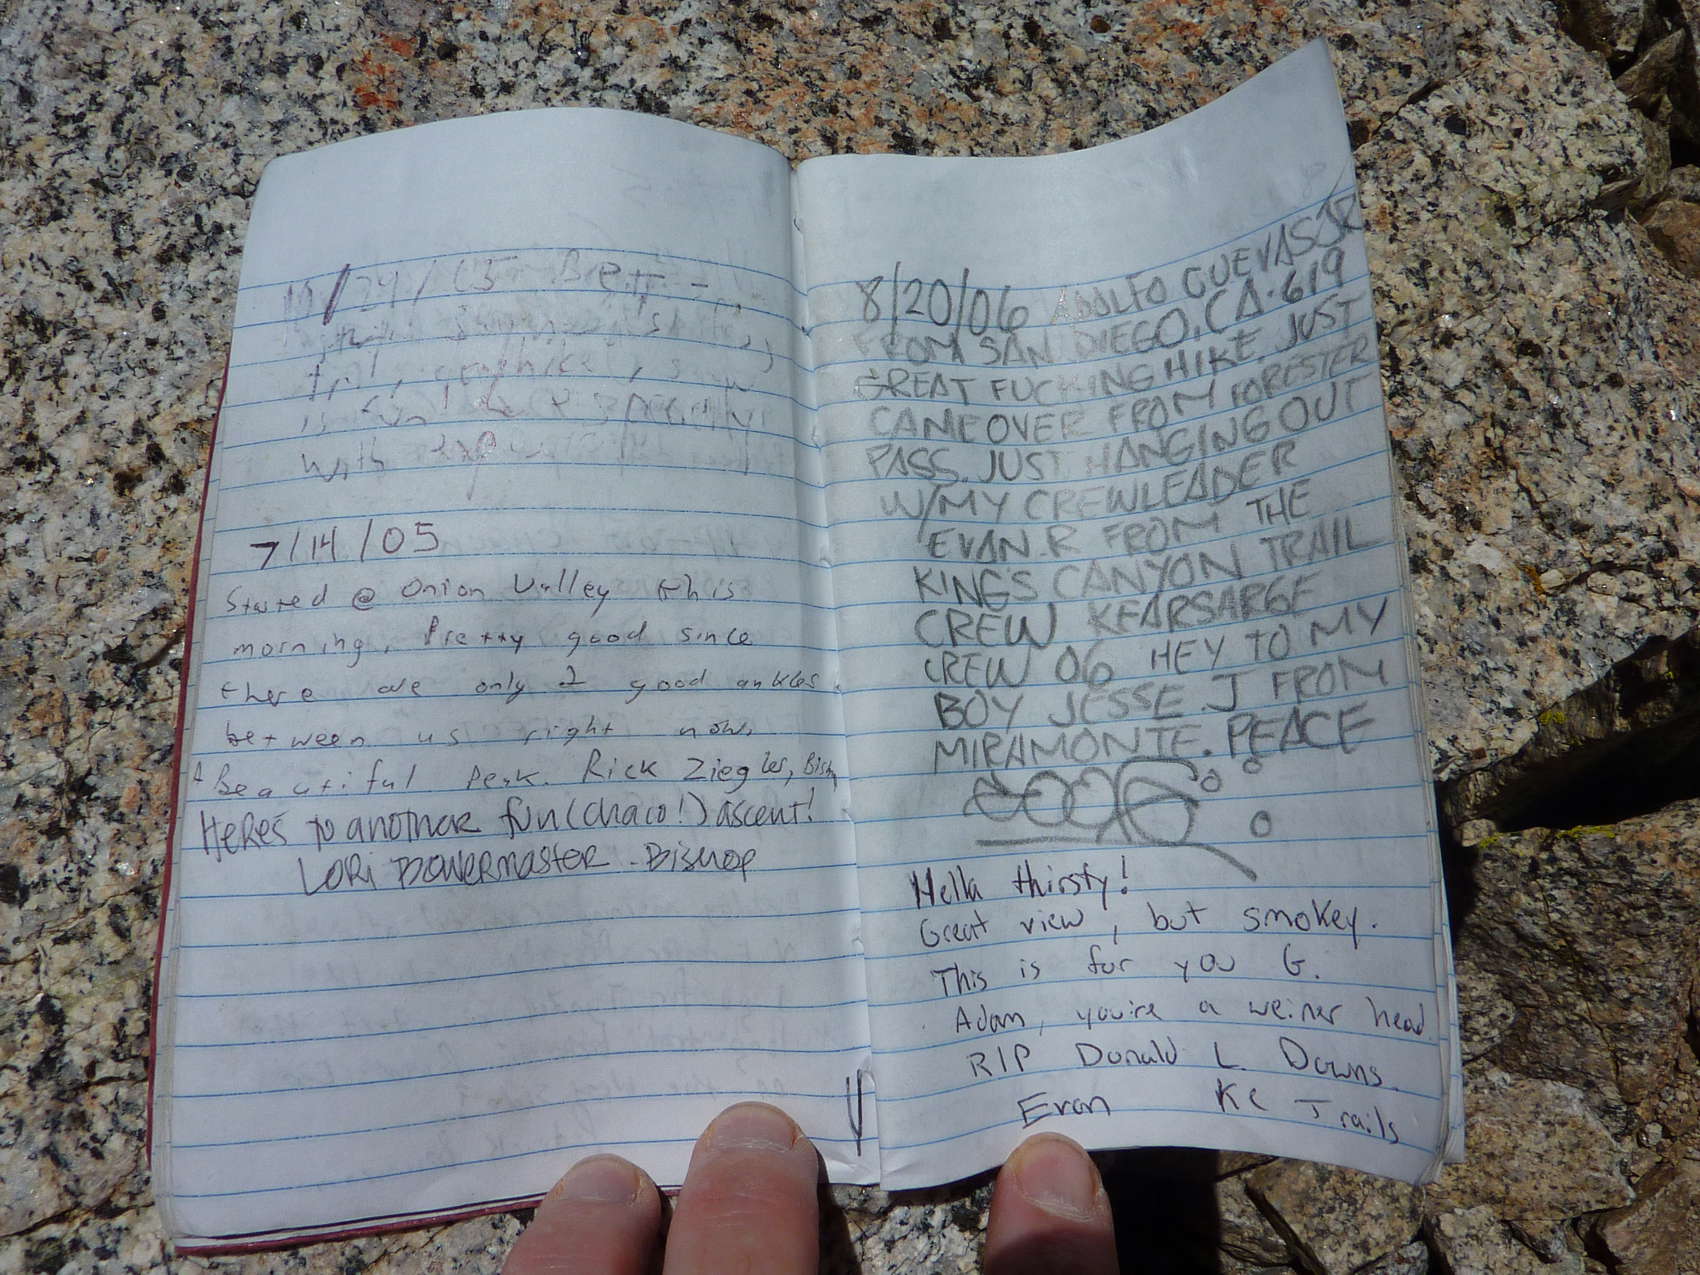 7/14/05
Started @ Onion Valley this
morning. Pretty good since
there are only 2 good ankles
between us right now.
A Beautiful Peak. Rick Ziegler,
HERES to another fun (chaco!) ascent!
LORi POWERMASTER - BISHOP
8/20/06 ADOLFO GUEVAS JR
FROM SAN DIEGO, CA. 619
GREAT FUCKING HIKE. JUST
CAME OVER FROM FORESTER
PASS. JUST HANGING OUT
W/MY CREWLEADER
EVAN.R FROM THE
KING'S CANYON TRAIL
CREW KEARSARGE
CREW 06 HEY TO MY
BOY JESSE.J FROM
MIRAMONTE. PEACE
2006
Hella thirsty!
Great view, but smokey.
This is for you G.
Adam, you're a weiner head.
RIP Donald L. Downs.
Evan KC Trails